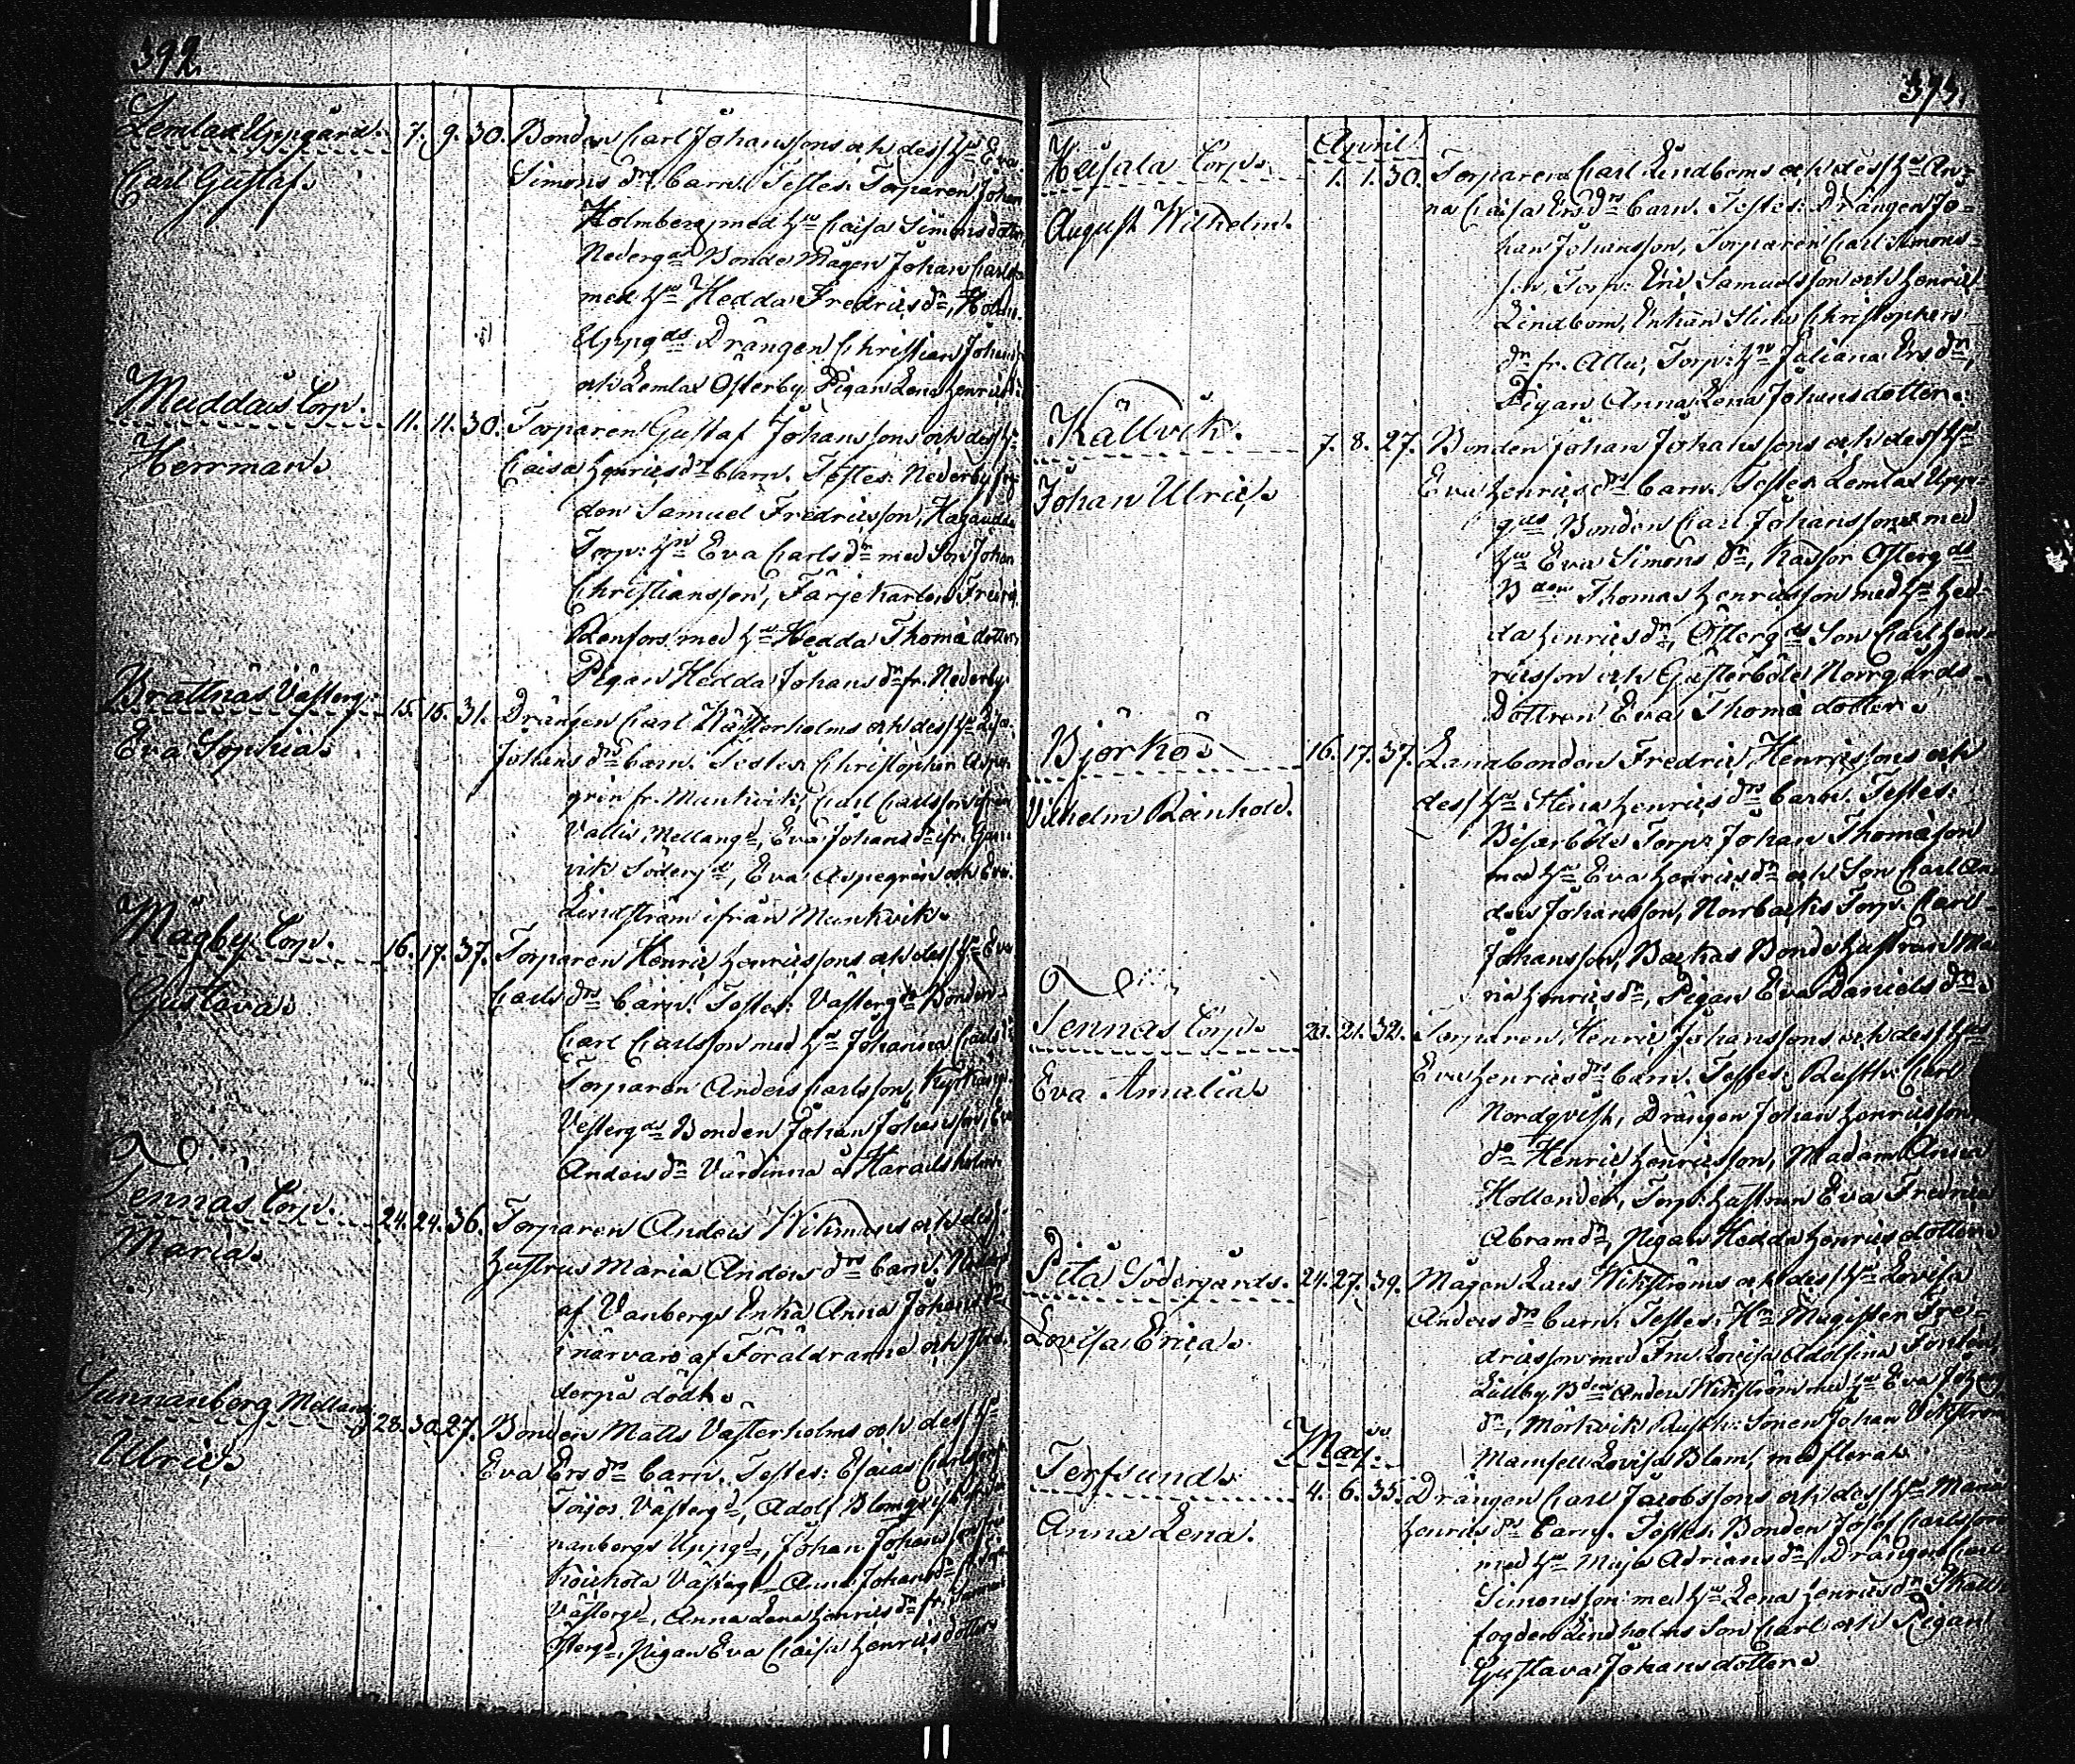 392.
Lemlax Uppgård. 7. 9. 30. Bonden Carl Johanssons och dess H:u Eva
Carl Gustaf. Simons d:rs barn. Testes: Torparen Johan
Holmberg med H:u Caisa Simonsdotter,
Nederg:ds Bonde Mågen Johan Carlss:
med H:u Hedda Fredrics d:r, Holm.
Uppg:ds Drängen Christian Johans
och Lemlax Österby Pigan Lena Henrics
Muddais Torp. 11. 11. 30. Torparen Gustaf Johanssons och dess H:
Herrman. Caisa Henrics d:rs barn. Testes: Nederby
den Samuel Fredricsson, Hagaudda
Torp: H:u Eva Carls d:r med Son Johan
Christiansson, Färjekarlen Fredric
Renfors med H:u Hedda Thomædotter,
Pigan Hedda Johans d:r fr. Nederby
Brattnäs Västerg: 15. 16. 31. Drängen Carl Västerholms och dess H:u
Eva Sophia. Johans d:rs barn. Testes: Christopher Aspe-
grén fr. Munkvik, Carl Carlsson från
Vallis Mellang:d, Eva Johans d:r ifr.
vik Söderg:d, Eva Aspegrén och Eva
Lindström ifrån Munkvik.
Mågby Torp. 16. 17. 37. Torparen Henric Henricssons och dess H:u Eva
Gustava. Carls d:rs barn. Testes: Västerg:ds Bonden
Carl Carlsson med H:u Johanna Carls
Torparen Anders Carlsson,
Vesterg:ds Bonden Johan Johansson, Eva
Anders d:r Värdinna å Haraldsholm.
Tennäs Torp. 24. 24. 36. Torparen Anders Wikmans och dess
Maria. Hustrus Maria Anders d:rs barn.
af Vanbergs Enka Anna Johans d:r
i närvaro af Föräldrarne och
derpå dödt.
Sunnanberg Mellang: 28. 30. 27. Bonden Matts Västerholms och dess H:u
Ulric. Eva Ers d:rs barn. Testes: Esaias Carlsson
Toijos Västerg:d, Adolf Blomqvist
nanbergs Uppg:d, Johan Johansson
Västerg:d Anna Johans d:r
Västerg:d, Anna Lena Henrics d:r fr.
Österg:d, Pigan Eva Caisa Henricsdotter.
393.
April.
Heisala Torp. 1. 1. 30. Torparen Carl Lindboms och dess H:u An-
August Wilhelm. na Caisa Ers d:rs barn. Testes: Drängen Jo-
han Johansson, Torparen Carl Simons-
son, Torp: Eric Samuelsson och Henric
Lindbom, Enkan Stina Christophers
d:r fr. Allu, Torp: H:u Juliana Ers d:r,
Pigan Anna Lena Johansdotter.
Källvik. 7. 8. 27. Bonden Johan Johanssons och dess H:u
Johan Ulric. Eva Henrics d:rs barn. Testes: Lemlax Upp-
g:ds Bonden Carl Johansson med
H:u Eva Simons d:r, Kassor Österg:ds
B:den Thomas Henricsson med H:u Hed-
da Henrics d:r, Österg:ds Son Carl Hen-
ricsson och Gusterböle Norrgårds
Dottren Eva Thomædotter.
Björkö. 16. 17. 37. Lanabonden Fredric Henricssons och
Vilhelm Reinhold. dess H:u Stina Henrics d:rs barn. Testes:
Bisarböle Torp: Johan Thomæson
med H:u Eva Henrics d:r och Son Carl An-
ders Johansson, Norrbacks Torp. Carl
Johansson, Backas Bonde Hustrun Ma-
ria Henrics d:r, Pigan Eva Daniels d:r.
Tennäs Torp. 20. 21. 32. Torparen Henric Johanssons och dess H:us
Eva Amalia. Eva Henrics d:rs barn. Testes: Rusth: Carl
Nordqvist, Drängen Johan Henricsson,
d:o Henric Henricsson, Madam Anna
Hollander, Torp: Hustrun Eva Fredrica
Abram d:r, Pigan Hedda Henricsdotter.
Pita Södergårds. 24. 27. 39. Mågen Lars Wikströms och dess H:u Lovisa
Lovisa Erica. Anders d:rs barn. Testes: H:r Magister Fre-
dricsson med Fru Lovisa Adolfina
Lillby B:den Anders Wikström med H:u Eva Johans
d:r, Mörkvik Rusth: Sonen Johan Vikström
Mamsell Lovisa Blom, med flera.
Maij.
Terfsund. 4. 6. 35. Drängen Carl Jacobssons och dess H:u Maria
Anna Lena. Henrics d:rs barn. Testes: Bonden Josef Carlsson
med H:u Maja Adrians d:r, Drängen Carl
Simonsson med H:u Lena Henrics d:r,
fogden Lindholms Son Carl och Pigan
Gustava Johansdotter.